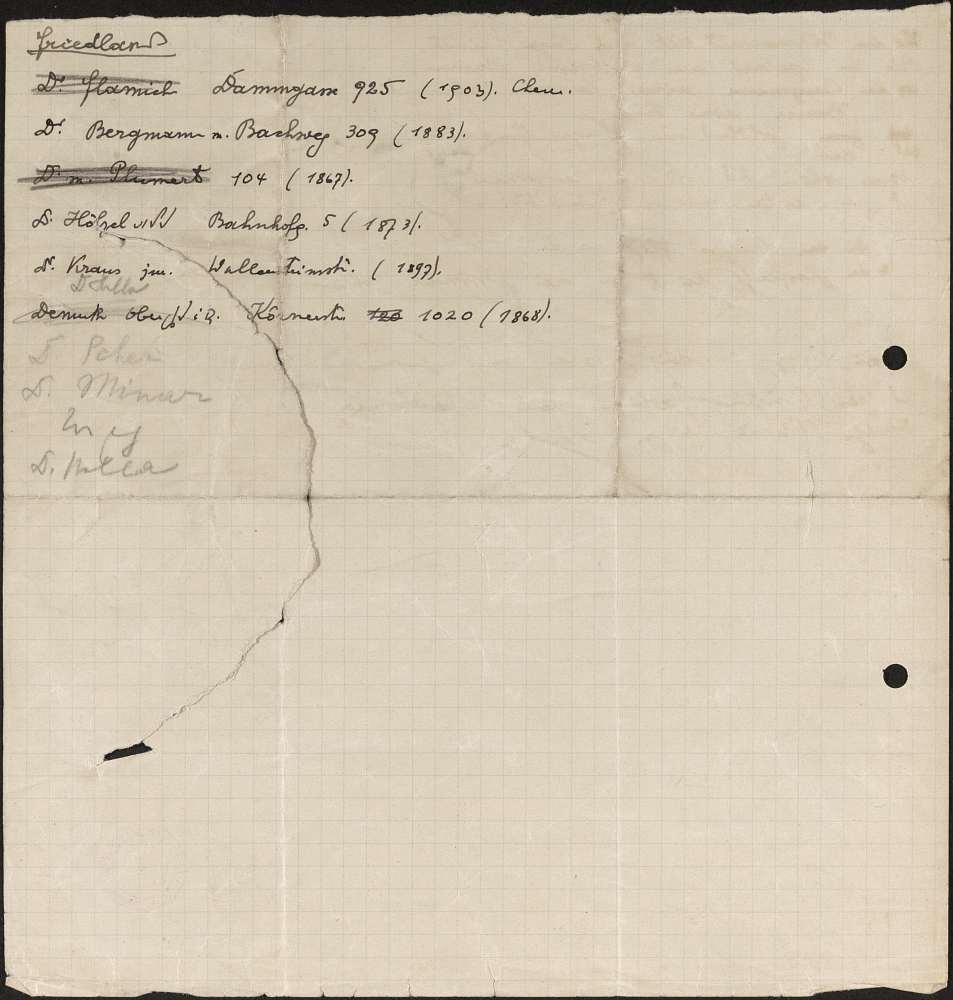 Friedland
Dr. Flamich Dammgasse 925 (1903). Chem.
Dr. Bergmann m. Bachweg 309 (1883).
Dr. m. Plumert 104 (1867).
Dr. Hölzel Bahnhofg. 5 (1873).
Dr. Kraus jun. Wallensteinstr. (1897).
Demuth i. R. Körnerstr. 120 1020 (1868).
D
D. Minar
D.